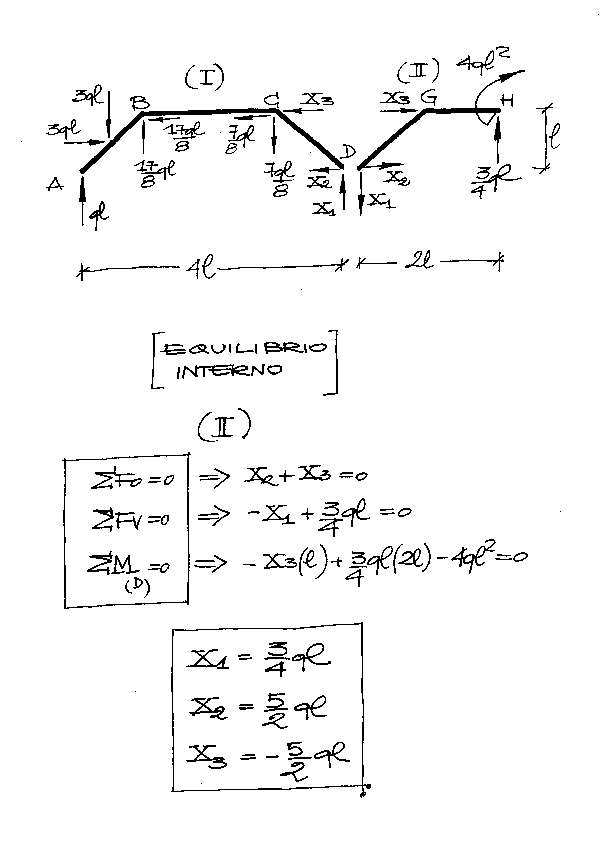 (I)
(II)
4ql²
3ql
B
C
X3
X3
G
H
3ql
17ql/8
7ql/8
l
A
17ql/8
7ql/8
D
X2
X2
3/4 ql
ql
X1
X1
4l
2l
[EQUILIBRIO
INTERNO]
(II)
ΣFo=0 => X2+X3=0
ΣFV=0 => -X1+3/4 ql=0
ΣM(D)=0 => -X3(l)+3/4 ql(2l)-4ql²=0
X1 = 3/4 ql
X2 = 5/2 ql
X3 = -5/2 ql